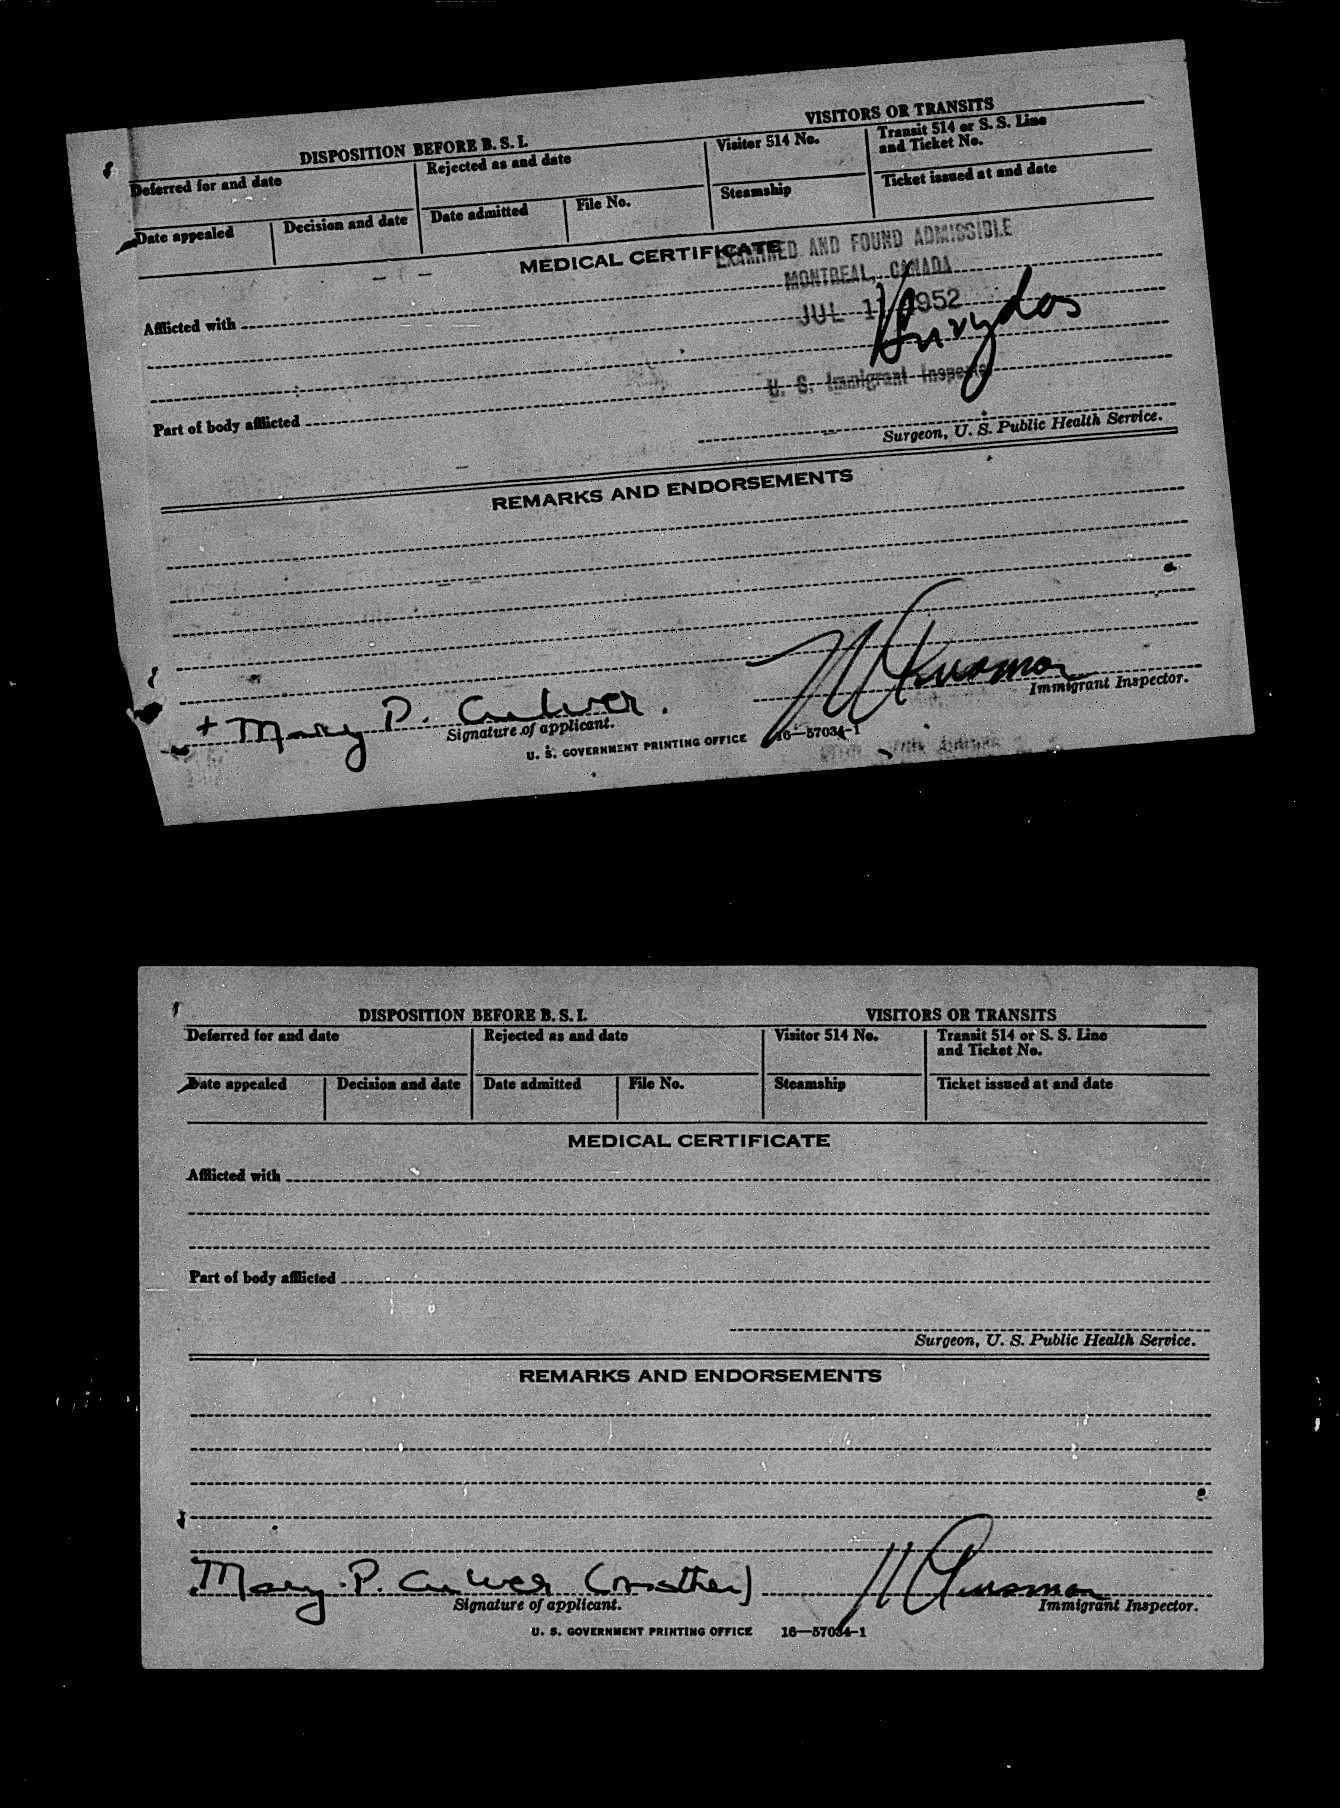 DISPOSITION BEFORE B. S. I.
VISITORS OR TRANSITS
Deferred for and date
Rejected as and date
Visitor 514 No.
Transit 514 or S. S. Line
and Ticket No.
Date appealed
Decision and date
Date admitted
File No.
Steamship
Ticket issued at and date
MEDICAL CERTIFICATE
EXAMINED AND FOUND ADMISSIBLE
MONTREAL, CANADA
JUL 1 1952
Afflicted with
U. S. Immigrant Inspector
Part of body afflicted
Surgeon, U. S. Public Health Service.
REMARKS AND ENDORSEMENTS
+ Mary P. Culver.
Signature of applicant.
Immigrant Inspector.
U. S. GOVERNMENT PRINTING OFFICE 16—57034-1
DISPOSITION BEFORE B. S. I.
VISITORS OR TRANSITS
Deferred for and date
Rejected as and date
Visitor 514 No.
Transit 514 or S. S. Line
and Ticket No.
Date appealed
Decision and date
Date admitted
File No.
Steamship
Ticket issued at and date
MEDICAL CERTIFICATE
Afflicted with
Part of body afflicted
Surgeon, U. S. Public Health Service.
REMARKS AND ENDORSEMENTS
Mary P. Culver (mother)
Signature of applicant.
Immigrant Inspector.
U. S. GOVERNMENT PRINTING OFFICE 16—57034-1